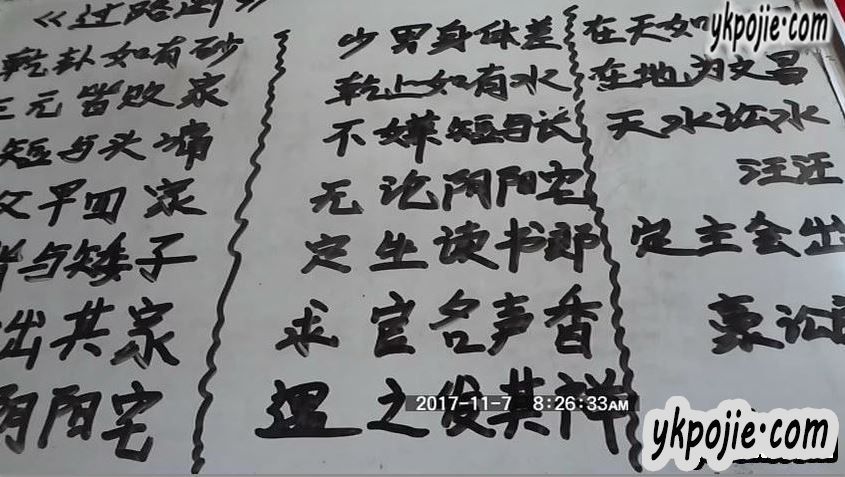 《过路阴》
乾卦如有砂
三元皆败家
短与头痛
父早回家
与矮子
出其家
阴阳宅
少男身体差
乾上如有水
不嫌短与长
无论阴阳宅
定生读书郎
求官名声香
遇之发其祥
在天如
在地为文昌
天水讼水
汪汪
定主会出
豪讼
ykpojie·com
2017-11-7 8:26:33AM
ykpojie·com